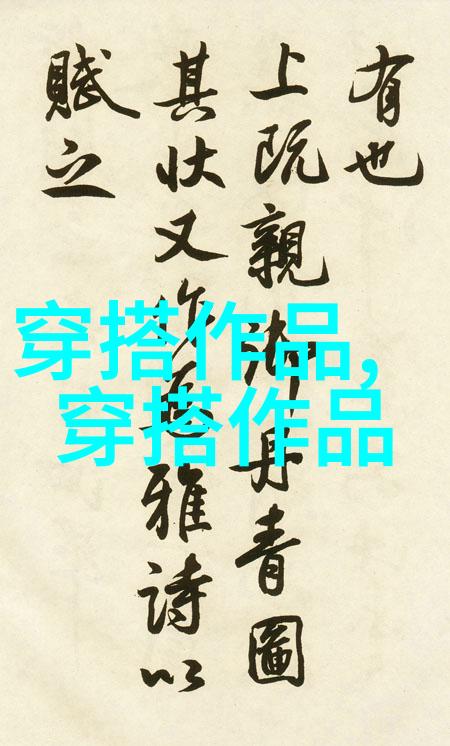 有也
上既親御丹青圖
其状又作雅詩以
賦之
穿搭作品,
穿搭作品